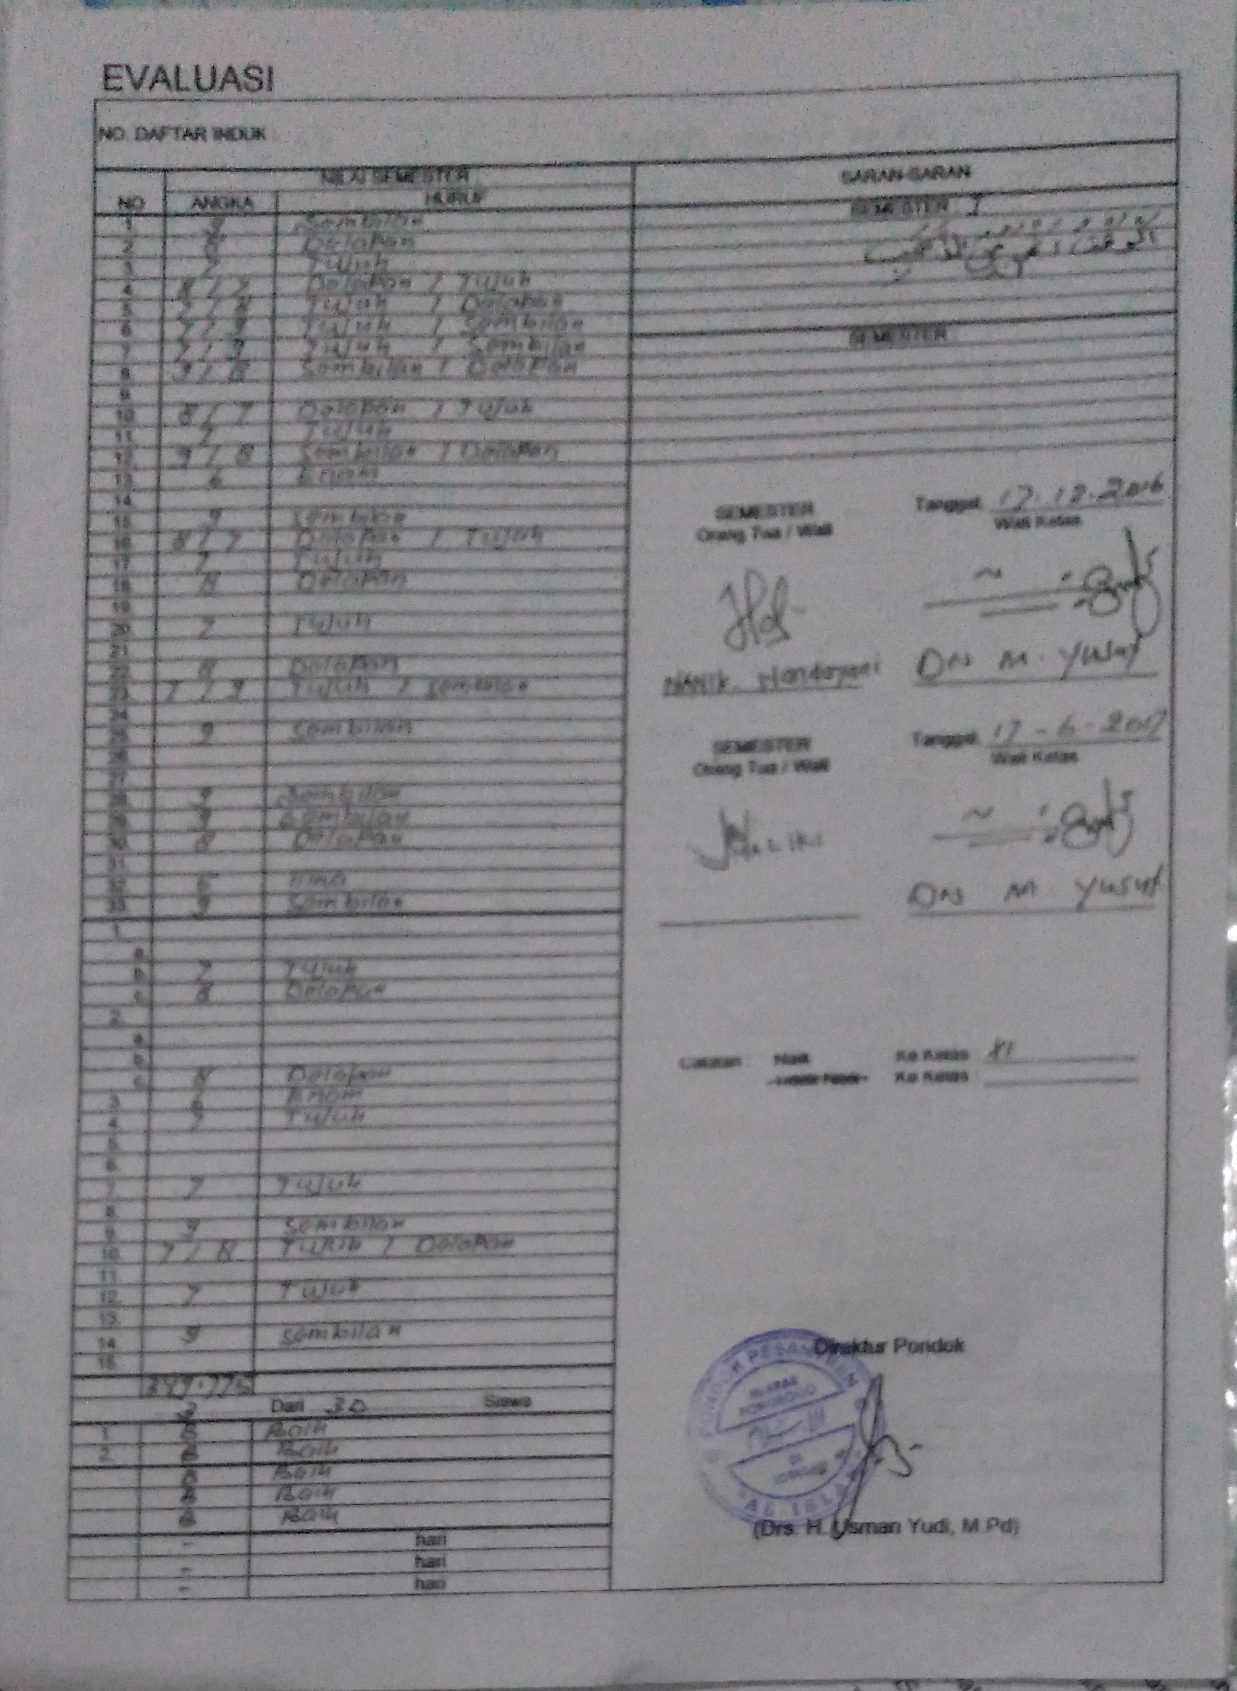 EVALUASI
NO. DAFTAR INDUK
NILAI SEMESTER
NO ANGKA HURUF
1 9 Sembilan
2 8 Delapan
3 7 Tujuh
4 8 / 7 Delapan / Tujuh
5 7 / 8 Tujuh / Delapan
6 7 / 9 Tujuh / Sembilan
7 7 / 9 Tujuh / Sembilan
8 9 / 8 Sembilan / Delapan
9
10 8 / 7 Delapan / Tujuh
11 7 Tujuh
12 9 / 8 Sembilan / Delapan
13 6 Enam
14
15 9 Sembilan
16 8 / 7 Delapan / Tujuh
17 7 Tujuh
18 8 Delapan
19
20 7 Tujuh
21
22 8 Delapan
23 7 / 9 Tujuh / Sembilan
24
25 9 Sembilan
26
27
28 9 Sembilan
29 9 Sembilan
30 8 Delapan
31
32 Lima
33 9 Sembilan
1
a.
b. 7 Tujuh
c. 8 Delapan
2
a.
b.
c. 8 Delapan
3 6 Enam
4 7 Tujuh
5
6
7 7 Tujuh
8
9 9 Sembilan
10 7 / 8 Tujuh / Delapan
11
12 7 Tujuh
13
14 9 Sembilan
15
Dari 30 Siswa
1 B Baik
2 B Baik
B Baik
B Baik
B Baik
- hari
- hari
- hari
SARAN-SARAN
SEMESTER : I
SEMESTER :
SEMESTER
Orang Tua / Wali
Tanggal 17-12-2016
Wali Kelas
NANIK Handayani
Drs M. Yusuf
SEMESTER
Orang Tua / Wali
Tanggal 17-6-2017
Wali Kelas
Drs M. Yusuf
Catatan : Naik Ke Kelas XI
Tidak Naik Ke Kelas
Direktur Pondok
PONDOK PESANTREN
AL-ISLAM
(Drs. H. Usman Yudi, M.Pd)